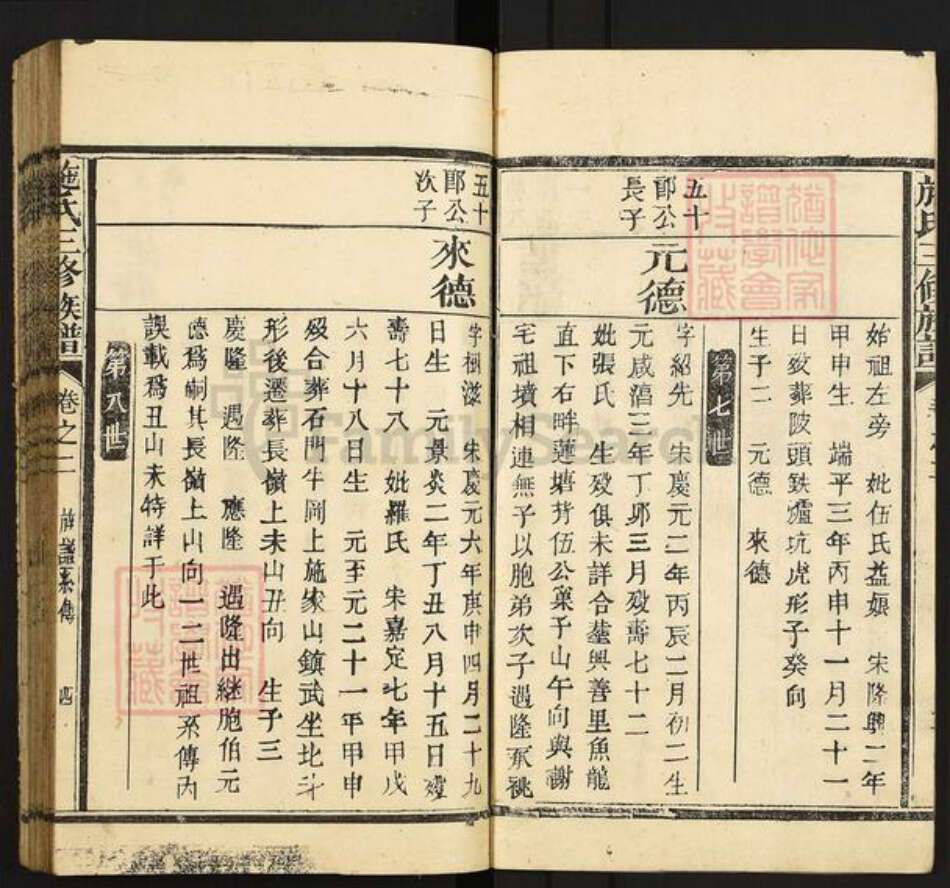 施氏三修族譜
始祖左旁　妣伍氏益娘　宋隆興二年
甲申生　端平三年丙申十一月二十一
日歿葬陂頭鉄爐坑虎形子癸向
生子二　元德　來德
第七世
五十郎公長子
元德
字紹先　宋慶元二年丙辰二月初二生
元咸淳三年丁卯三月歿壽七十二
妣張氏　生歿俱未詳合塟興善里魚龍
直下右畔蓮塘背伍公窠子山午向與謝
宅祖墳相連無子以胞弟次子遇隆承祧
五十郎公次子
來德
字　宋慶元六年庚申四月二十九
日生　元景炎二年丁丑八月十五日歿
壽七十八　妣羅氏　宋嘉定七年甲戌
六月十八日生　元至元二十一年甲申
歿合葬石門牛岡上施家山鎮武坐北斗
形後遷葬長嶺上未山丑向　生子三
慶隆　遇隆　應隆　遇隆出継胞伯元
德爲嗣其長嶺上山向一二世祖系傳內
誤載爲丑山未特詳于此
第八世
施氏三修族譜
卷之二
族譜系傳
四
FamilySearch